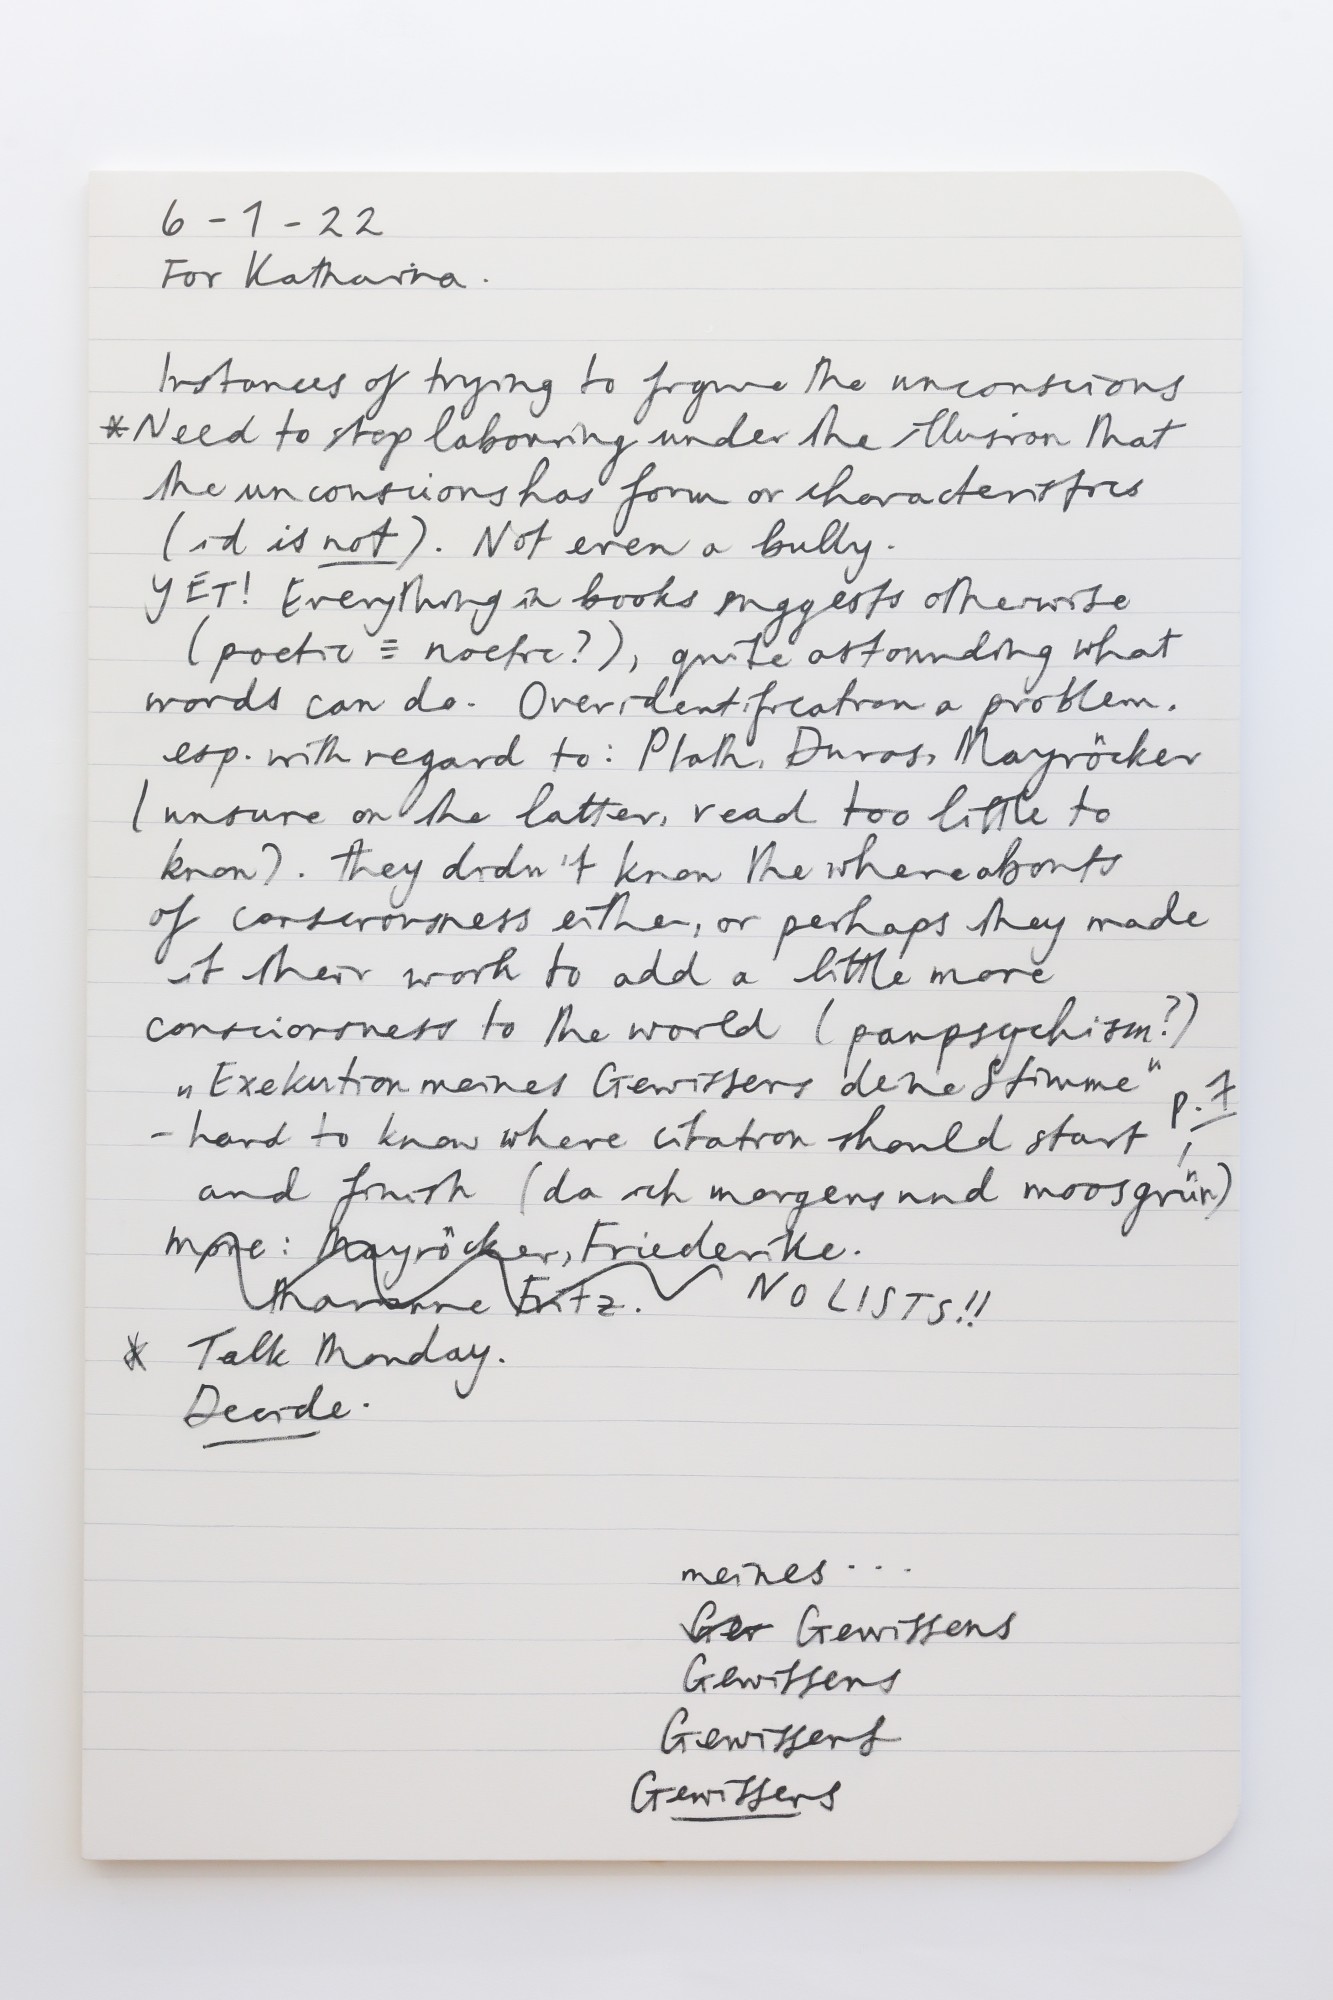 6-1-22
For Katharina.
Instances of trying to figure the unconscious
*Need to stop labouring under the illusion that
the unconscious has form or characteristics
(id is not). Not even a bully.
YET! Everything in books suggests otherwise
(poetic ≡ noetic?), quite astounding what
words can do. Overidentification a problem.
esp. with regard to: Plath, Duras, Mayröcker
(unsure on the latter, read too little to
know). They didn't know the whereabouts
of consciousness either, or perhaps they made
it their work to add a little more
consciousness to the world (panpsychism?)
„Exekution meines Gewissens deine Stimme" p. 7
- hard to know where citation should start,
and finish (da ich morgens und moosgrün)
more: Mayröcker, Friederike.
Marianne Fritz. NO LISTS!!
* Talk Monday.
Decide.
meines...
Ger Gewissens
Gewissens
Gewissens
Gewissens